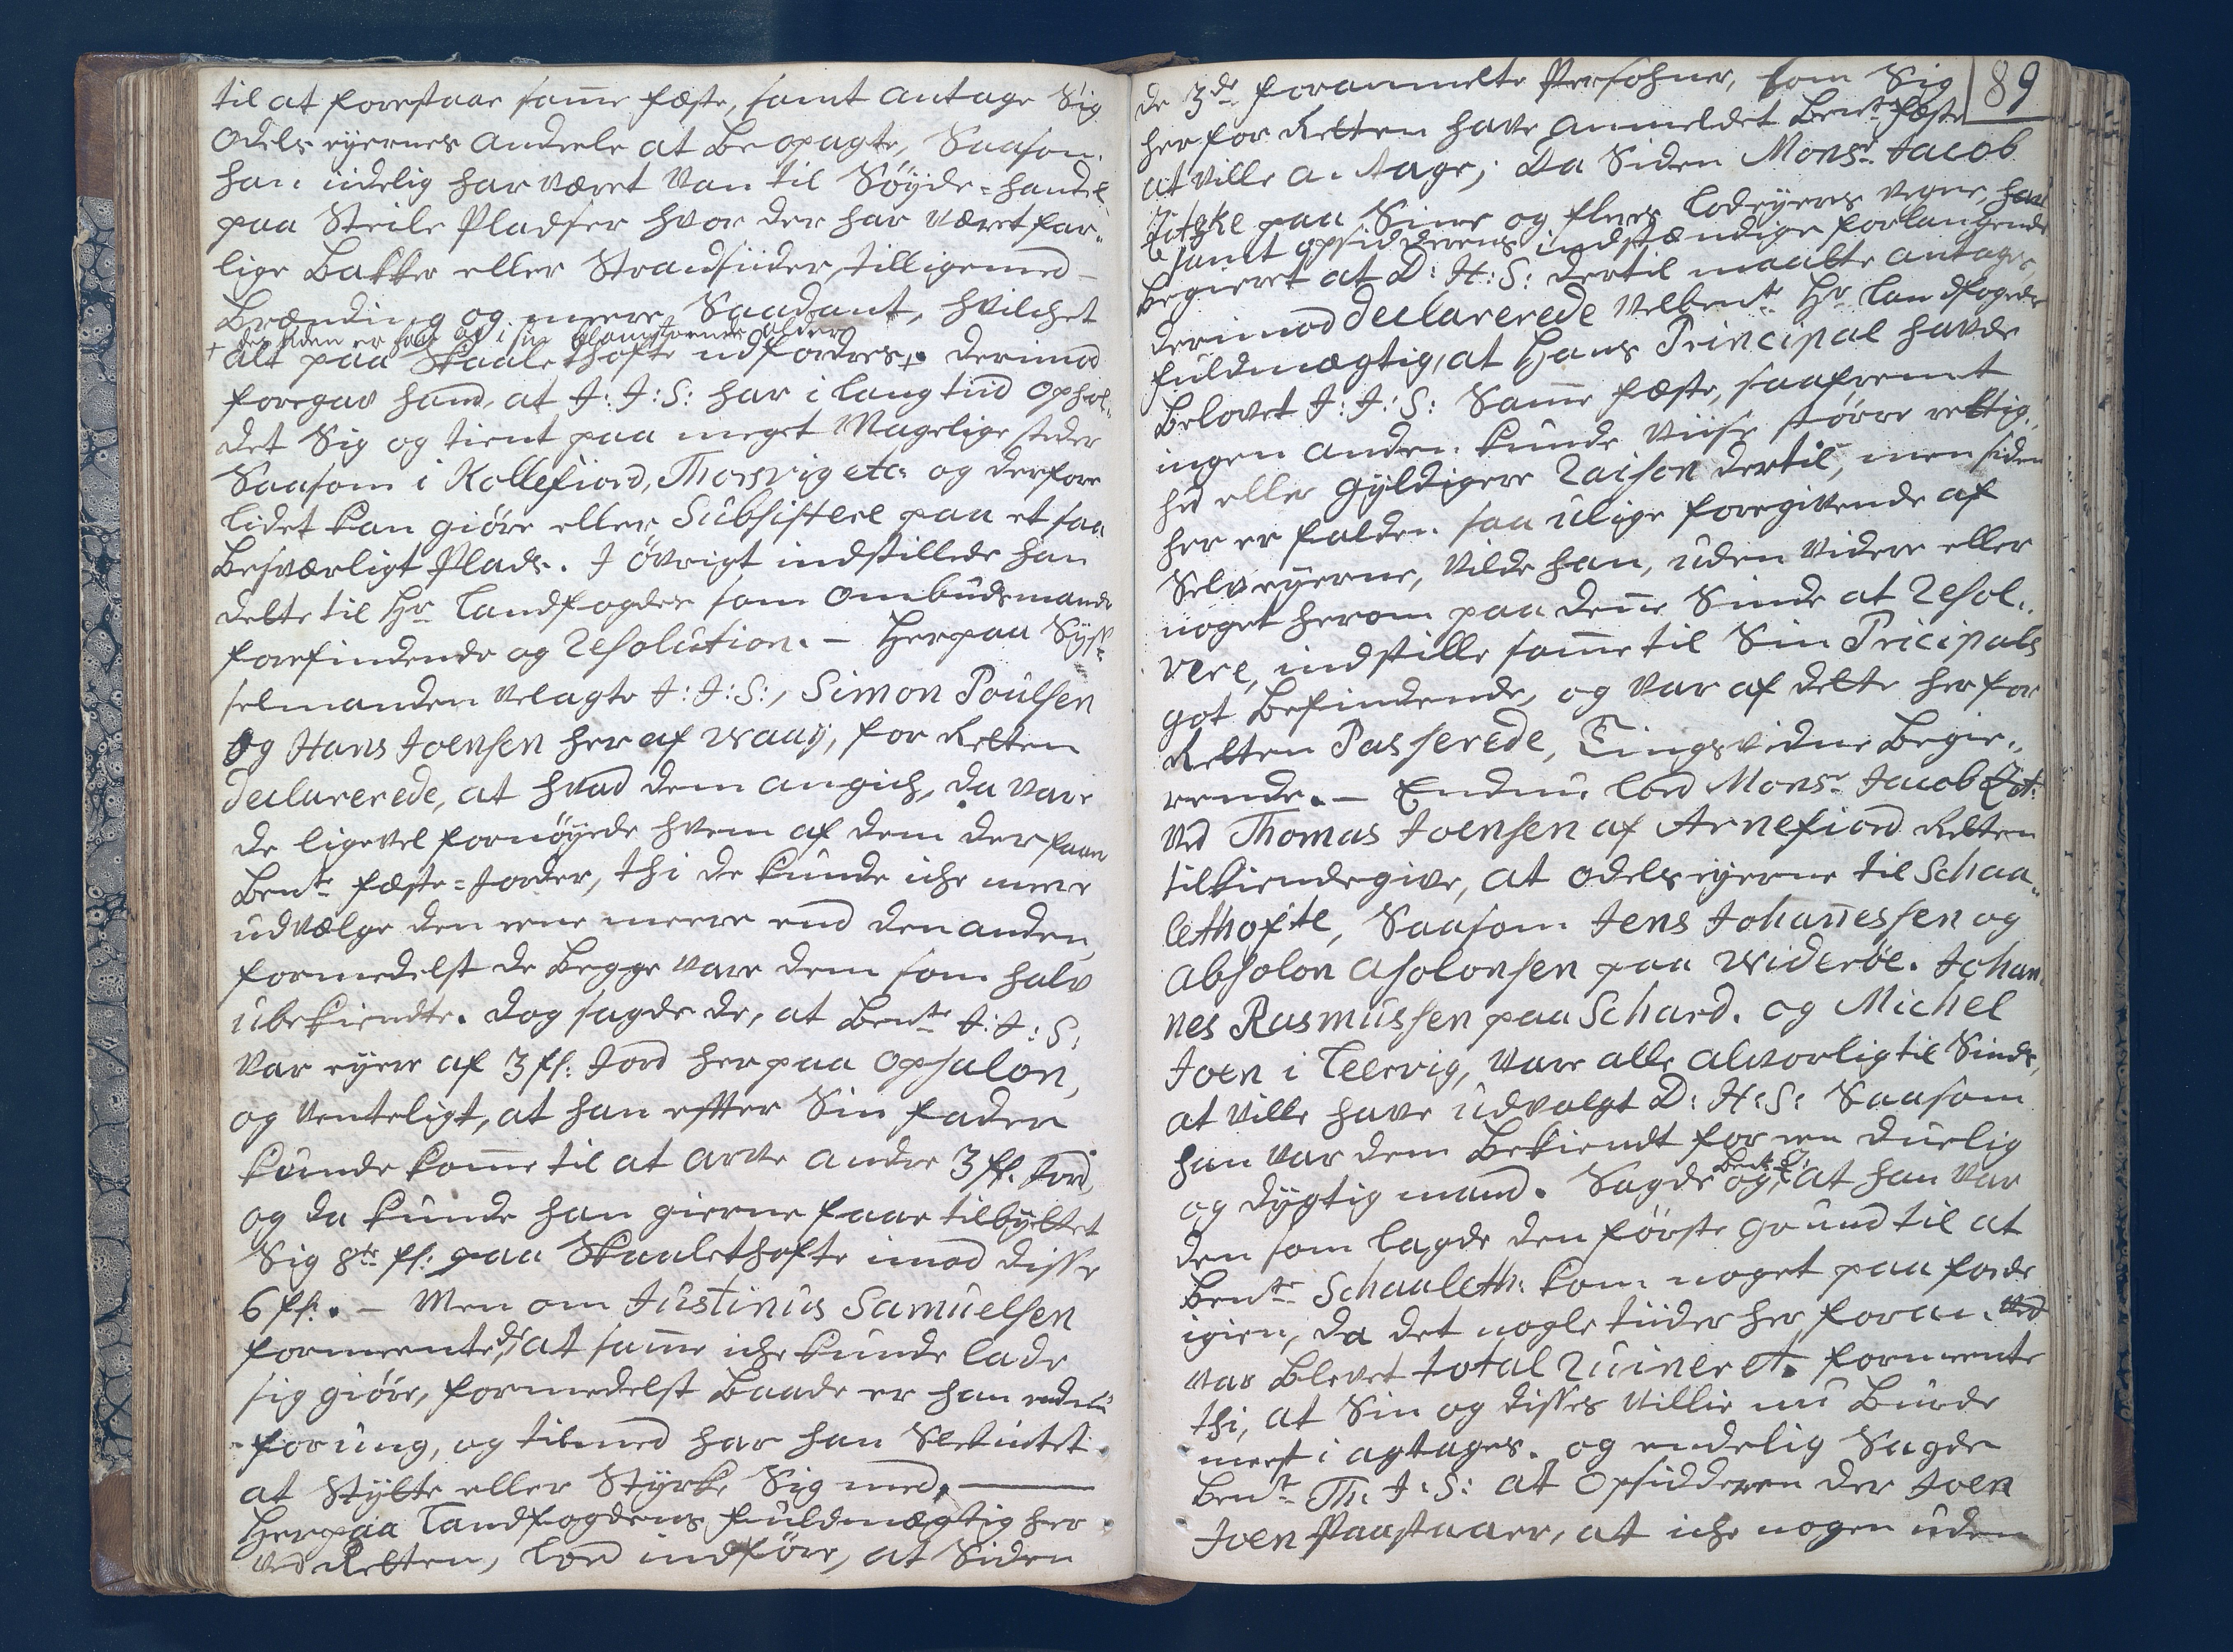 til at forestaae samme fæste, samt antage Sig
odels eyernes Andeele at Beopagte, Saasom
han idelig har været van til Söyde-handel
paa Steile Pladser hvor der har været far„
lige Bakker eller Strandsiider, tilligemed
Brænding og meere Saadant, hvilchet
+ des uden er faae og i sin alder
alt paa Skaalethofte udfordres +. Derimod
foregav hand, at J: J: S: har i lang tiid ophol„
det Sig og tient paa meget Magelige steder
Saasom i Kollefiord, Thorsvig etc: og derfore
lidet kan giöre eller Subsistere paa et saa
Besværligt Plads. I övrigt indstillede han
dette til Hr Landfogden som ombudsmands
forefindende og Resolution. — Herpaa Syss„
selmanden velagte J: J: S:, Simon Poulsen
og Hans Joensen her af Waaÿ, for Retten
declarerede, at hvad dem angich, da vare
de ligevel fornöyede hvem af dem der faaer
Bente fæste-Jorder, thi de kunde iche meere
udvælge den eene meere end den anden,
formedelst de Begge vare dem som halv
ubekiendte. dog sagde de, at Bente J: J: S:
var eyere af 3 ff: Jord her paa opsalon,
og venteligt, at han effter Sin fader
kunde komme til at arve andre 3 ff. Jord,
og da kunde han gierne faae tilbyttet
Sig 8te ff: paa Skaalethofte imod disse
6 ff. — Men om Justinus Samuelsen
formeente de, at samme iche kunde lade
sig giöre, formedelst Baade er han endnu
for ung, og tilmed har han Slet intet
at Stytte eller Styrke Sig med, —
Herpaa Landfogdens fuldmægtig her
ved Retten, lod indföre, at Siden
89
de 3de foranmelte Persohner, som Sig
her for Retten have anmeldet Bente fæste
at ville antage; Da Siden Monsr Jacob
paa Sine og fleres Lodeyers vegne, har
samt opsidderens indstændige forlangende
begieret at D: H: S: dertil maatte antages,
derimod declarerede velbente Hr Landfogeds
fuldmægtig, at Hans Principal havde
Belovet J: J: S: Samme fæste, saafremt
ingen anden kunde viise större rettig„
hed eller gyldigere Raison dertil, men siden
her er falden saa ulige foregivende af
Selveyerne, vilde han, uden videre eller
noget herom paa denne Sinde at Resol„
vere, indstille samme til Sin Pricipals
got Befindende, og var af dette her for
Retten Passerede, Tingsvidne Begie„
rende. — Endnu lod Monsr Jacob
ved Thomas Joensen af Arnefiord Retten
tilkiendegive, at odelseyerne til Schaa„
lethofte, Saasom Jens Johannessen og
Absolon Asolonsen paa Wideröe. Johan
nes Rasmussen paa Schard. og Michel
Joen i Teervig, vare alle alvorlig til Sinds,
at ville have udvalgt D: H: S: Saasom
han var dem Bekiendt for een duelig
og dygtig mand. Sagde og, at han var
den som lagde den förste grund til at
Bente Schaaleth: kom noget paa fode
igien, da det nogle tiider her foran
var blevet total Ruineret. formeente
thi, at Sin og disses villie nu Burde
meest i agtages. og endelig Sagde
Bente Th: J: S: at opsidderen der Joen
Joen paastaaer, at iche nogen uden